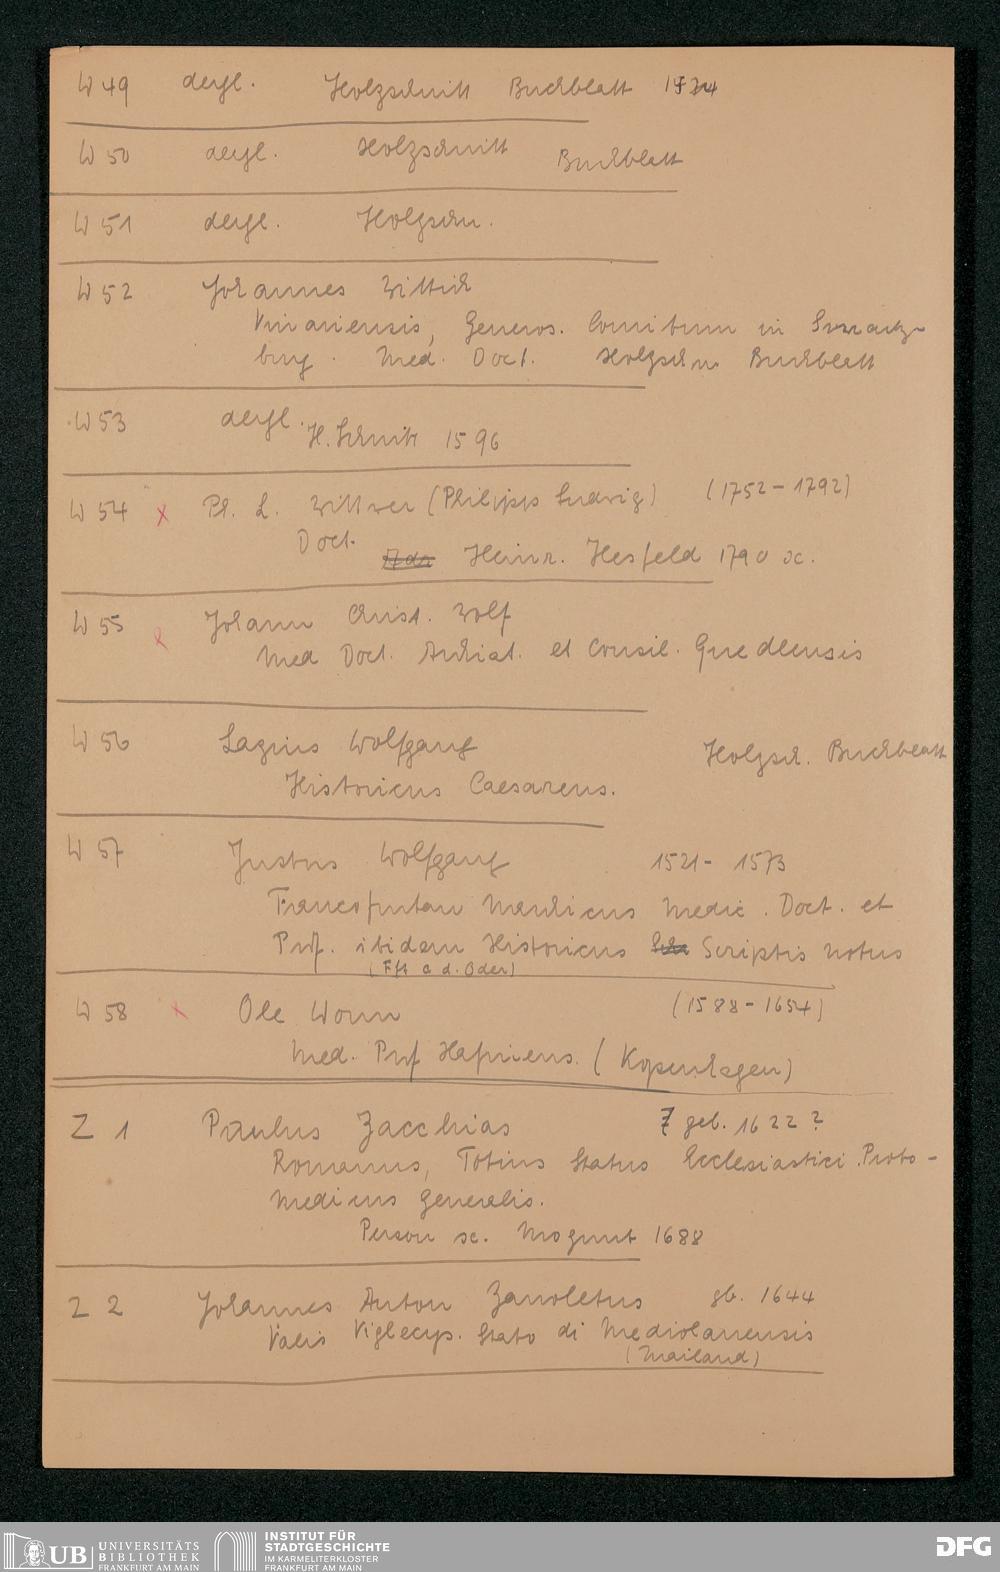 W 49 dergl. Holzschnitt Buchblatt
W 50 dergl. Holzschnitt Buchblatt
W 51 dergl. Holzschn.
W 52 Johannes Wittich
Vinariensis, Generos. Comitum in Swartz-
burg. Med. Doct. Holzschn Buchblatt
W 53 dergl. H. Schnitt 1596
W 54 x Ph. L. Wittwer (Philipp Ludwig) (1752-1792)
Doct. Heinr. Hesfeld 1790 sc.
W 55 Johann Christ. Wolf
Med Doct. Archiat. et Consil. Quedlensis
W 56 Lazius Wolfgang Holzsch. Buchblatt
Historicus Caesareus.
W 57 Justus Wolfgang 1521-1573
Francofurtan Marchicus Medic. Doct. et
Prof. ibidem Historicus Scriptis notus
(Fft a d. Oder)
W 58 x Ole Worm (1588-1654)
Med. Prof Hafniens. (Kopenhagen)
Z 1 Paulus Zacchias geb. 1622?
Romanus, Totius Status Ecclesiastici Proto-
Medicus Generalis.
Person sc. Mogunt 1688
Z 2 Johannes Anton Zanoletus gb. 1644
Valis Viglecys. Stato di Mediolanensis
(Mailand)
UB UNIVERSITÄTS
BIBLIOTHEK
FRANKFURT AM MAIN
INSTITUT FÜR
STADTGESCHICHTE
IM KARMELITERKLOSTER
FRANKFURT AM MAIN
DFG